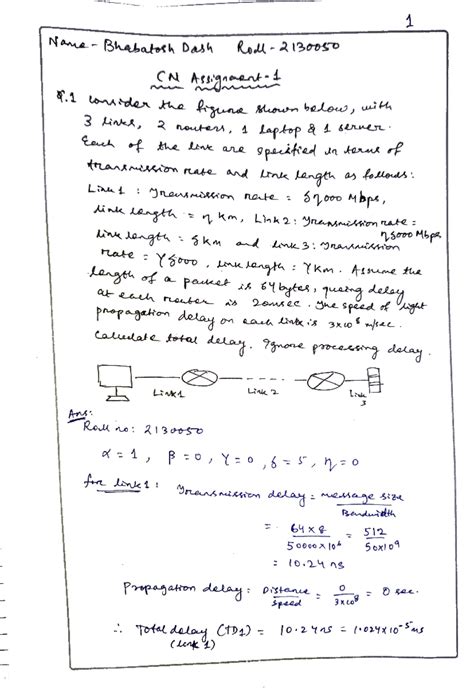 1
Name - Bhabatosh Dash Roll - 2130050
CN Assignment-1
Q.1 Consider the figure shown below, with
3 links, 2 routers, 1 laptop & 1 server.
Each of the link are specified in terms of
transmission rate and link length as follows:
Link 1 : Transmission rate = δη000 Mbps,
link length = η km, Link 2: Transmission rate =
ηδ000 Mbps
link length = δ km and link 3: Transmission
rate = γδ000, link length = γ km. Assume the
length of a packet is 64 bytes, queing delay
at each router is 20nsec. The speed of light
propagation delay on each link is 3x10⁸ m/sec.
Calculate total delay. Ignore processing delay.
Link 1 Link 2 Link 3
Ans:
Roll no: 2130050
α = 1, β = 0, γ = 0, δ = 5, η = 0
for link 1: Transmission delay = message size / Bandwidth
= 64 x 8 / 50000 x 10⁶ = 512 / 50x10⁹
= 10.24 ns
Propagation delay: Distance / Speed = 0 / 3x10⁸ = 0 sec.
∴ Total delay (TD1) = 10.24 ns = 1.024x10⁻⁵ ms
(link 1)